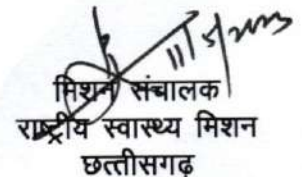 11/5/2023
मिशन संचालक
राष्ट्रीय स्वास्थ्य मिशन
छत्तीसगढ़